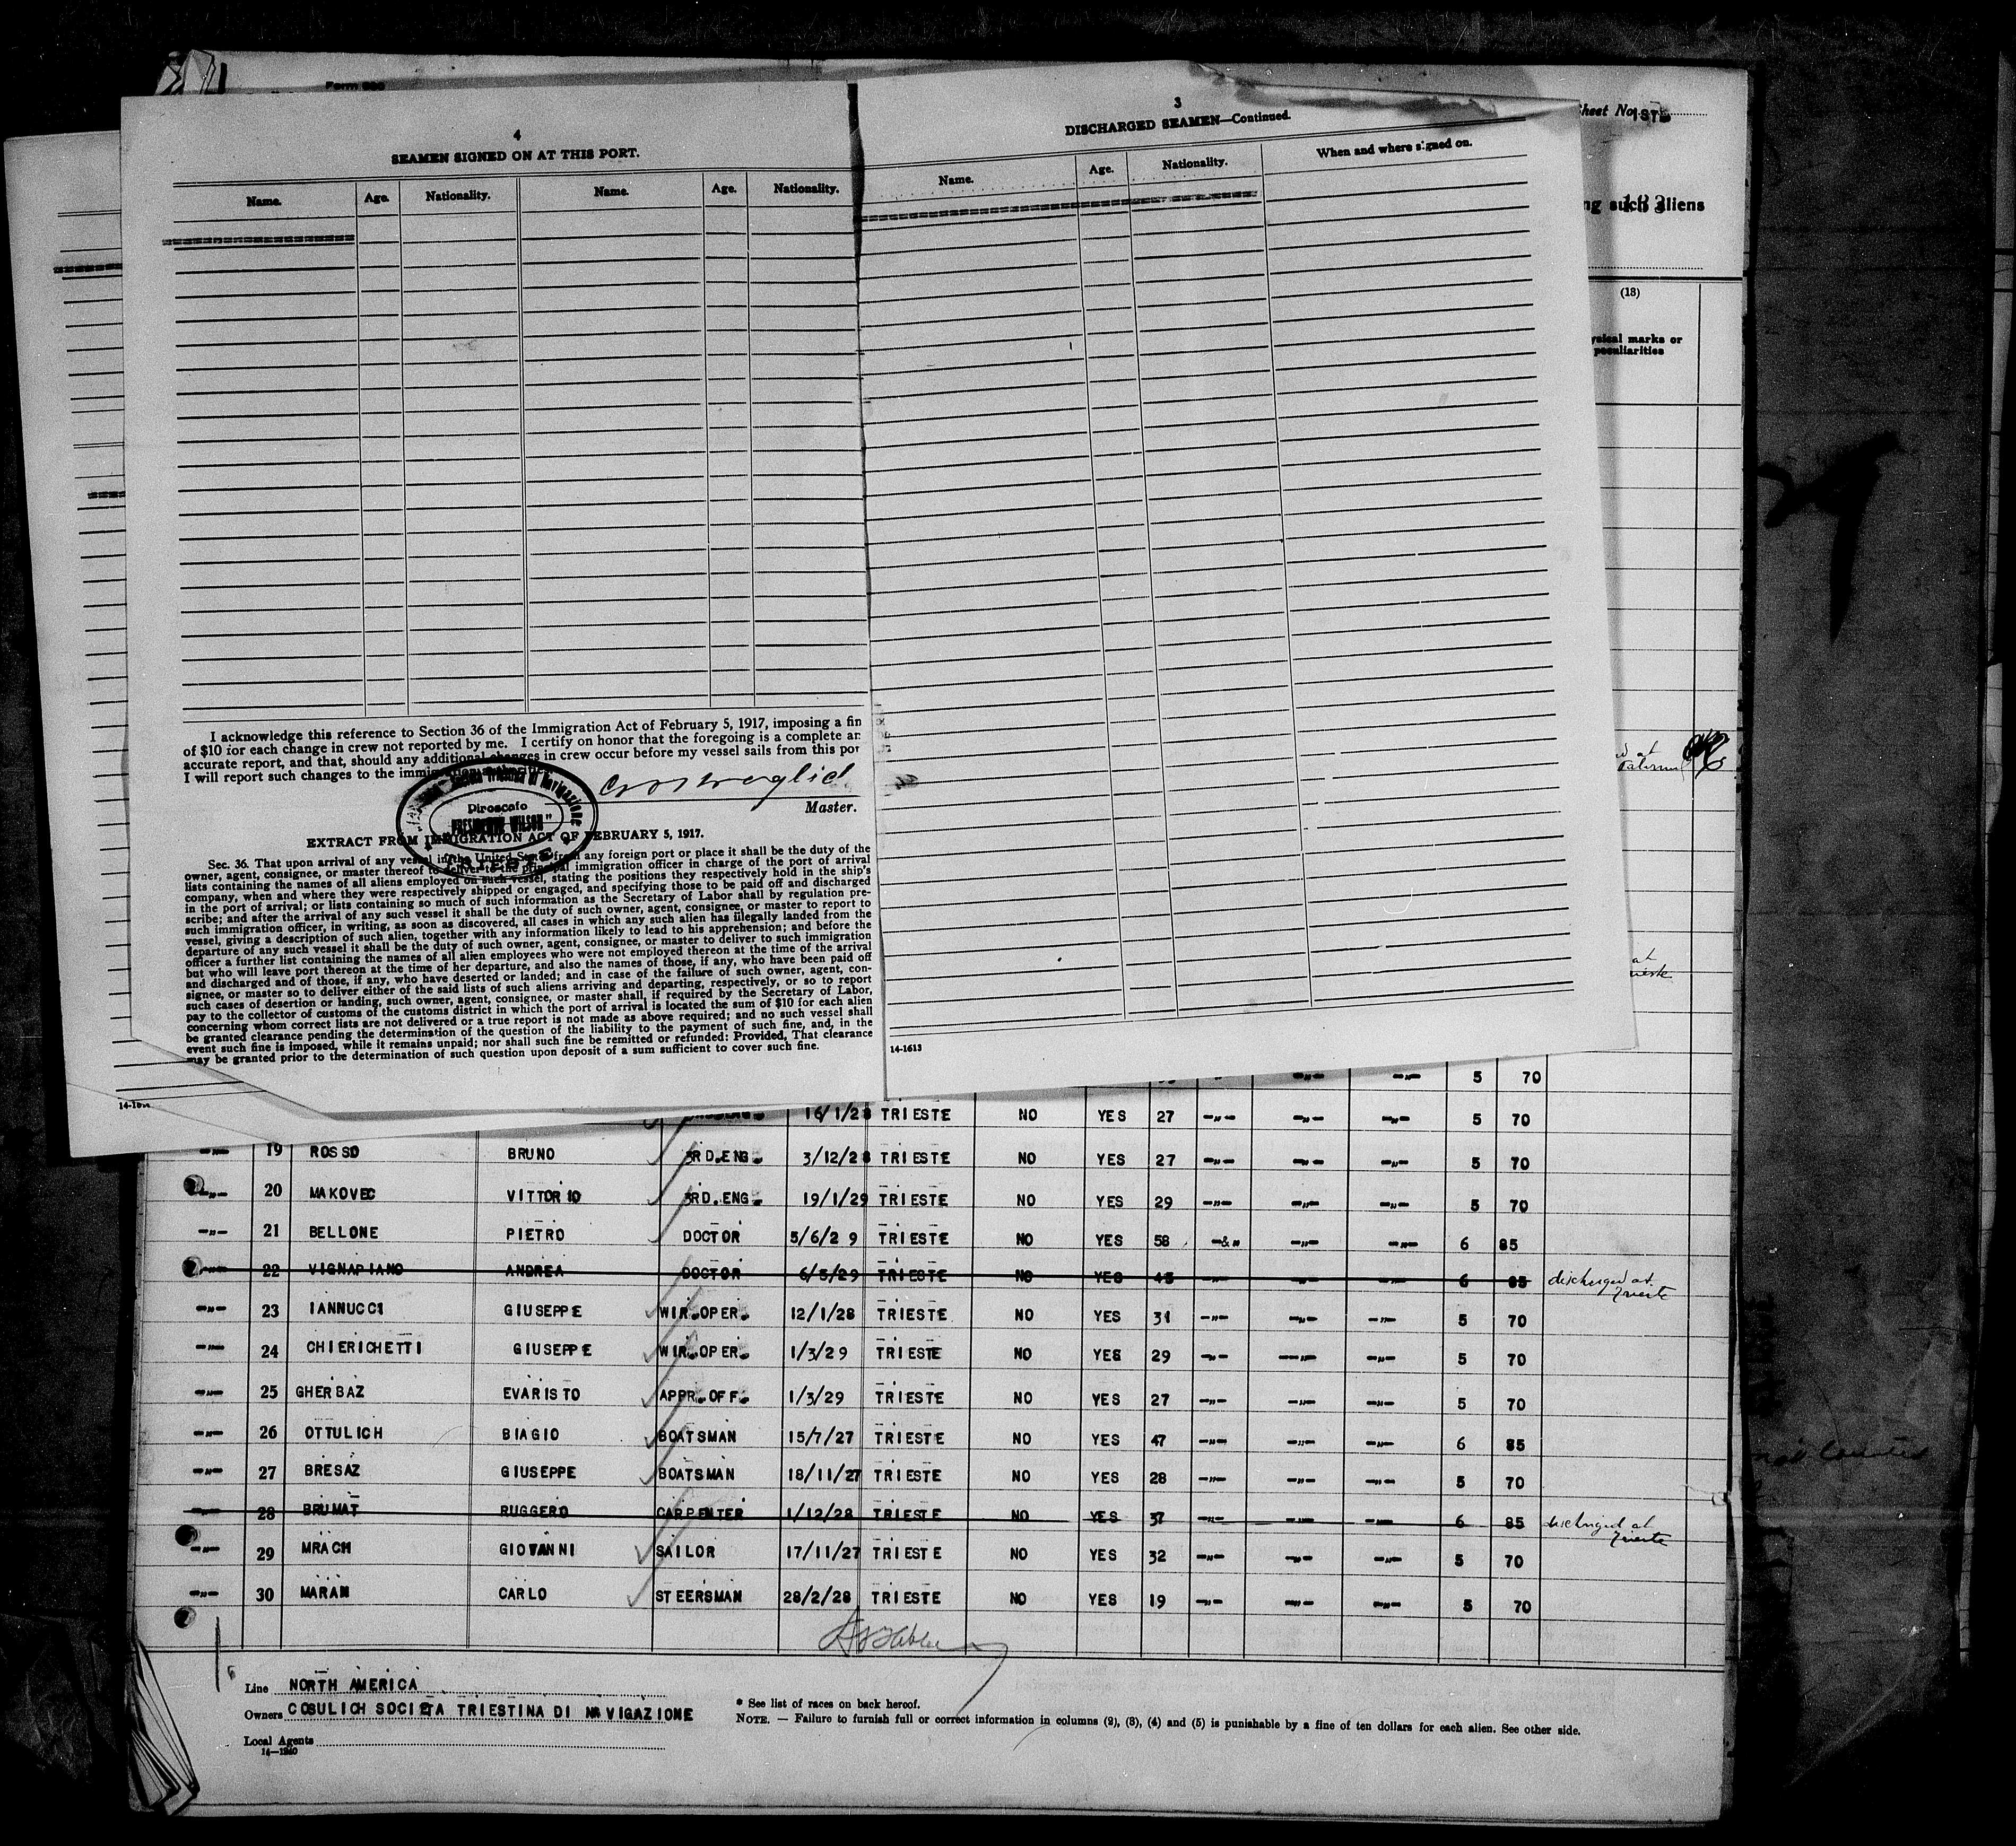 Form 680
Sheet No. 1STE
ng such aliens
183
(18)
ysical marks or
peculiarities
4
SEAMEN SIGNED ON AT THIS PORT.
Name. Age. Nationality. Name. Age. Nationality.
I acknowledge this reference to Section 36 of the Immigration Act of February 5, 1917, imposing a fin
of $10 for each change in crew not reported by me. I certify on honor that the foregoing is a complete an
accurate report, and that, should any additional changes in crew occur before my vessel sails from this por
I will report such changes to the immigration
Master.
Triestina di Navigazione
Piroscafo
"PRESIDENTE WILSON"
TRIESTE
EXTRACT FROM IMMIGRATION ACT OF FEBRUARY 5, 1917.
Sec. 36. That upon arrival of any vessel in the United States from any foreign port or place it shall be the duty of the
owner, agent, consignee, or master thereof to deliver to the principal immigration officer in charge of the port of arrival
lists containing the names of all aliens employed on such vessel, stating the positions they respectively hold in the ship's
company, when and where they were respectively shipped or engaged, and specifying those to be paid off and discharged
in the port of arrival; or lists containing so much of such information as the Secretary of Labor shall by regulation pre-
scribe; and after the arrival of any such vessel it shall be the duty of such owner, agent, consignee, or master to report to
such immigration officer, in writing, as soon as discovered, all cases in which any such alien has illegally landed from the
vessel, giving a description of such alien, together with any information likely to lead to his apprehension; and before the
departure of any such vessel it shall be the duty of such owner, agent, consignee, or master to deliver to such immigration
officer a further list containing the names of all alien employees who were not employed thereon at the time of the arrival
but who will leave port thereon at the time of her departure, and also the names of those, if any, who have been paid off
and discharged and of those, if any, who have deserted or landed; and in case of the failure of such owner, agent, con-
signee, or master so to deliver either of the said lists of such aliens arriving and departing, respectively, or so to report
such cases of desertion or landing, such owner, agent, consignee, or master shall, if required by the Secretary of Labor,
pay to the collector of customs of the customs district in which the port of arrival is located the sum of $10 for each alien
concerning whom correct lists are not delivered or a true report is not made as above required; and no such vessel shall
be granted clearance pending the determination of the question of the liability to the payment of such fine, and, in the
event such fine is imposed, while it remains unpaid; nor shall such fine be remitted or refunded: Provided, That clearance
may be granted prior to the determination of such question upon deposit of a sum sufficient to cover such fine.
3
DISCHARGED SEAMEN—Continued.
Name. Age. Nationality. When and where signed on.
14-1613
5 70
16/1/28 TRIESTE NO YES 27 -"- -"- -"- 5 70
-"- 19 ROSSO BRUNO 3RD.ENG. 3/12/28 TRIESTE NO YES 27 -"- -"- -"- 5 70
-"- 20 MAKOVEC VITTORIO 3RD.ENG. 19/1/29 TRIESTE NO YES 29 -"- -"- -"- 5 70
-"- 21 BELLONE PIETRO DOCTOR 5/6/29 TRIESTE NO YES 58 -&" -"- -"- 6 85
-"- 22 VIGNAPIANO ANDREA DOCTOR 6/5/29 TRIESTE NO YES 45 -"- -"- -"- 6 85 discharged at Trieste
-"- 23 IANNUCCI GIUSEPPE WIR.OPER. 12/1/28 TRIESTE NO YES 31 -"- -"- -"- 5 70
-"- 24 CHIERICHETTI GIUSEPPE WIR.OPER. 1/3/29 TRIESTE NO YES 29 -"- -"- -"- 5 70
-"- 25 GHERBAZ EVARISTO APPR.OFF. 1/3/29 TRIESTE NO YES 27 -"- -"- -"- 5 70
-"- 26 OTTULICH BIAGIO BOATSMAN 15/7/27 TRIESTE NO YES 47 -"- -"- -"- 6 85
-"- 27 BRESAZ GIUSEPPE BOATSMAN 18/11/27 TRIESTE NO YES 28 -"- -"- -"- 5 70
-"- 28 BRUMAT RUGGERO CARPENTER 1/12/28 TRIESTE NO YES 37 -"- -"- -"- 6 85 discharged at Trieste
-"- 29 MRACH GIOVANNI SAILOR 17/11/27 TRIESTE NO YES 32 -"- -"- -"- 5 70
-"- 30 MARAN CARLO STEERSMAN 28/2/28 TRIESTE NO YES 19 -"- -"- -"- 5 70
Line NORTH AMERICA
Owners COSULICH SOCIETA TRIESTINA DI NAVIGAZIONE
Local Agents
14—1240
* See list of races on back hereof.
NOTE. — Failure to furnish full or correct information in columns (2), (3), (4) and (5) is punishable by a fine of ten dollars for each alien. See other side.